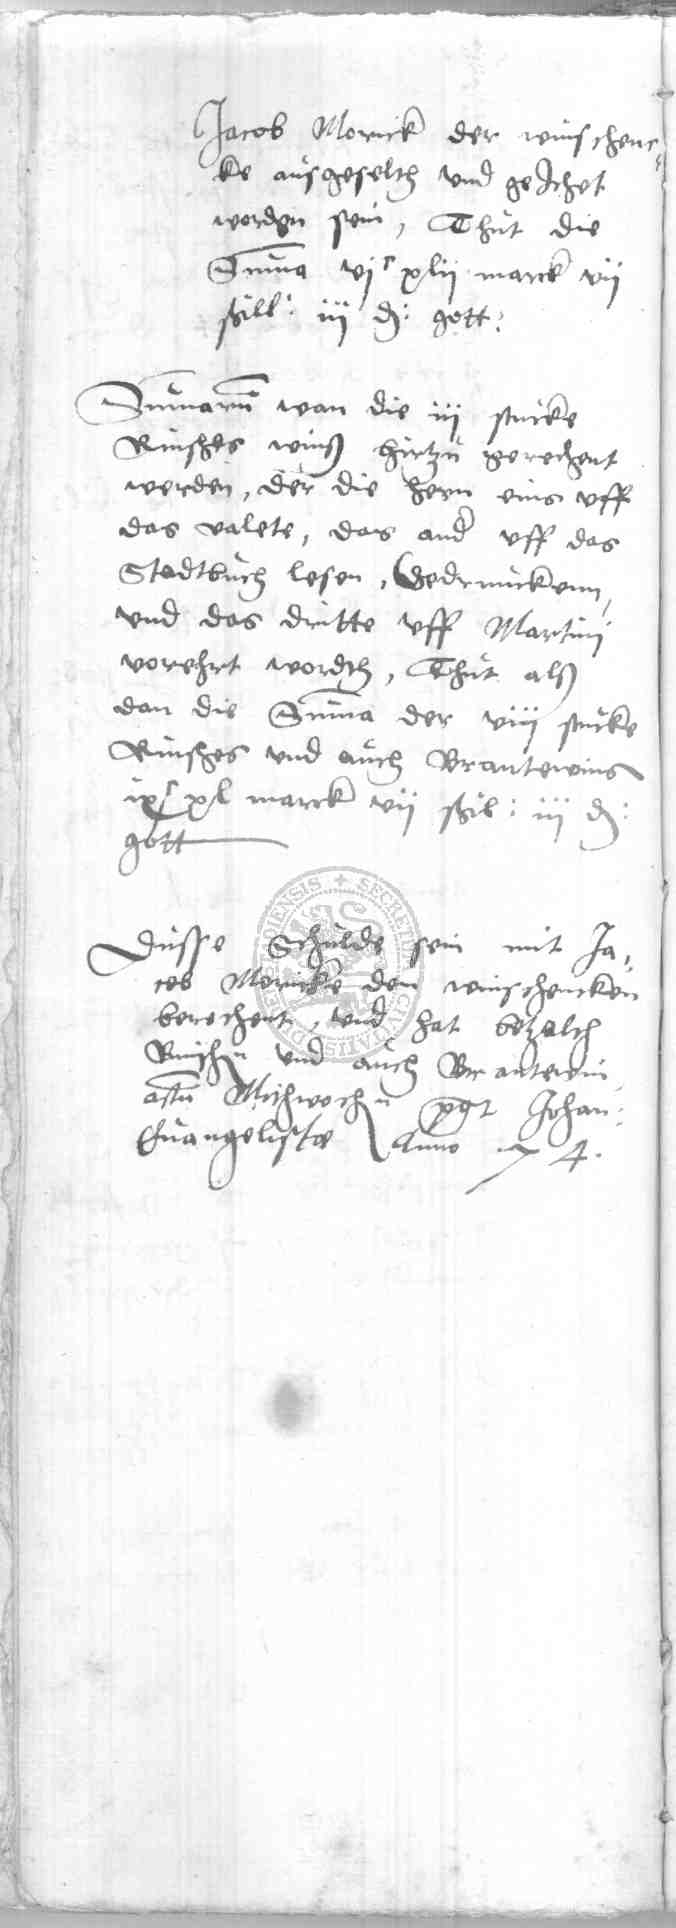 Jacob Morick der winschenc-
ke ausgeselth vnd geIchet
worden sein, Thut die
Suma vjc xlii marck vii
ßill: iij d: gott:
Sumarum wan die iij stucke
Rinsches winß hirtzu gerechent
werden, der die hern eins vff
das valete, das ander vff das
Stadtbuch lesen, Gedrunckenn,
vnd das dritte vff Martini
vorehrt wordth, Thut alß
dan die Suma der viij stucke
Rinsches vnd auch Brantewins
ixc xl marck vii ßil: iij d:
gott
Dusse Schulde sein mit Ja,
cob Moricke den winschencken
berechent, vnd hat betzalth
Rinschn vnd auch Brantewin
actum Mithwochn pgt Johan:
Euangelistæ Anno 74.
SECRETUM CIVITATIS